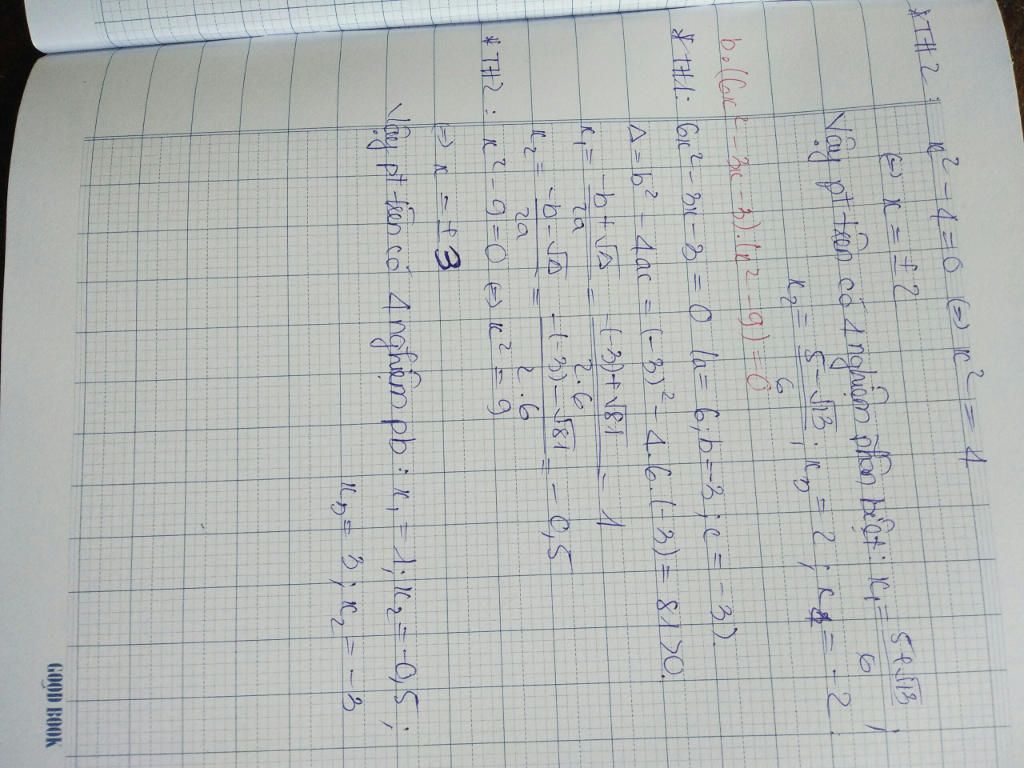 *TH2: x² - 4 = 0 (=) x² = 4
(=) x = ±2
Vậy pt trên có 4 nghiệm phân biệt: x₁ = (5+√13)/6 ;
x₂ = (5-√13)/6 ; x₃ = 2 ; x₄ = -2
b, (6x² - 3x - 3).(x² - 9) = 0
*TH1: 6x² - 3x - 3 = 0 (a = 6; b = -3; c = -3).
Δ = b² - 4ac = (-3)² - 4.6.(-3) = 81 > 0.
x₁ = (-b+√Δ)/2a = (-(-3)+√81)/2.6 = 1
x₂ = (-b-√Δ)/2a = (-(-3)-√81)/2.6 = -0,5
*TH2: x² - 9 = 0 (=) x² = 9
(=) x = ±3
Vậy pt trên có 4 nghiệm pb: x₁ = 1; x₂ = -0,5;
x₃ = 3; x₂ = -3
GOOD BOOK